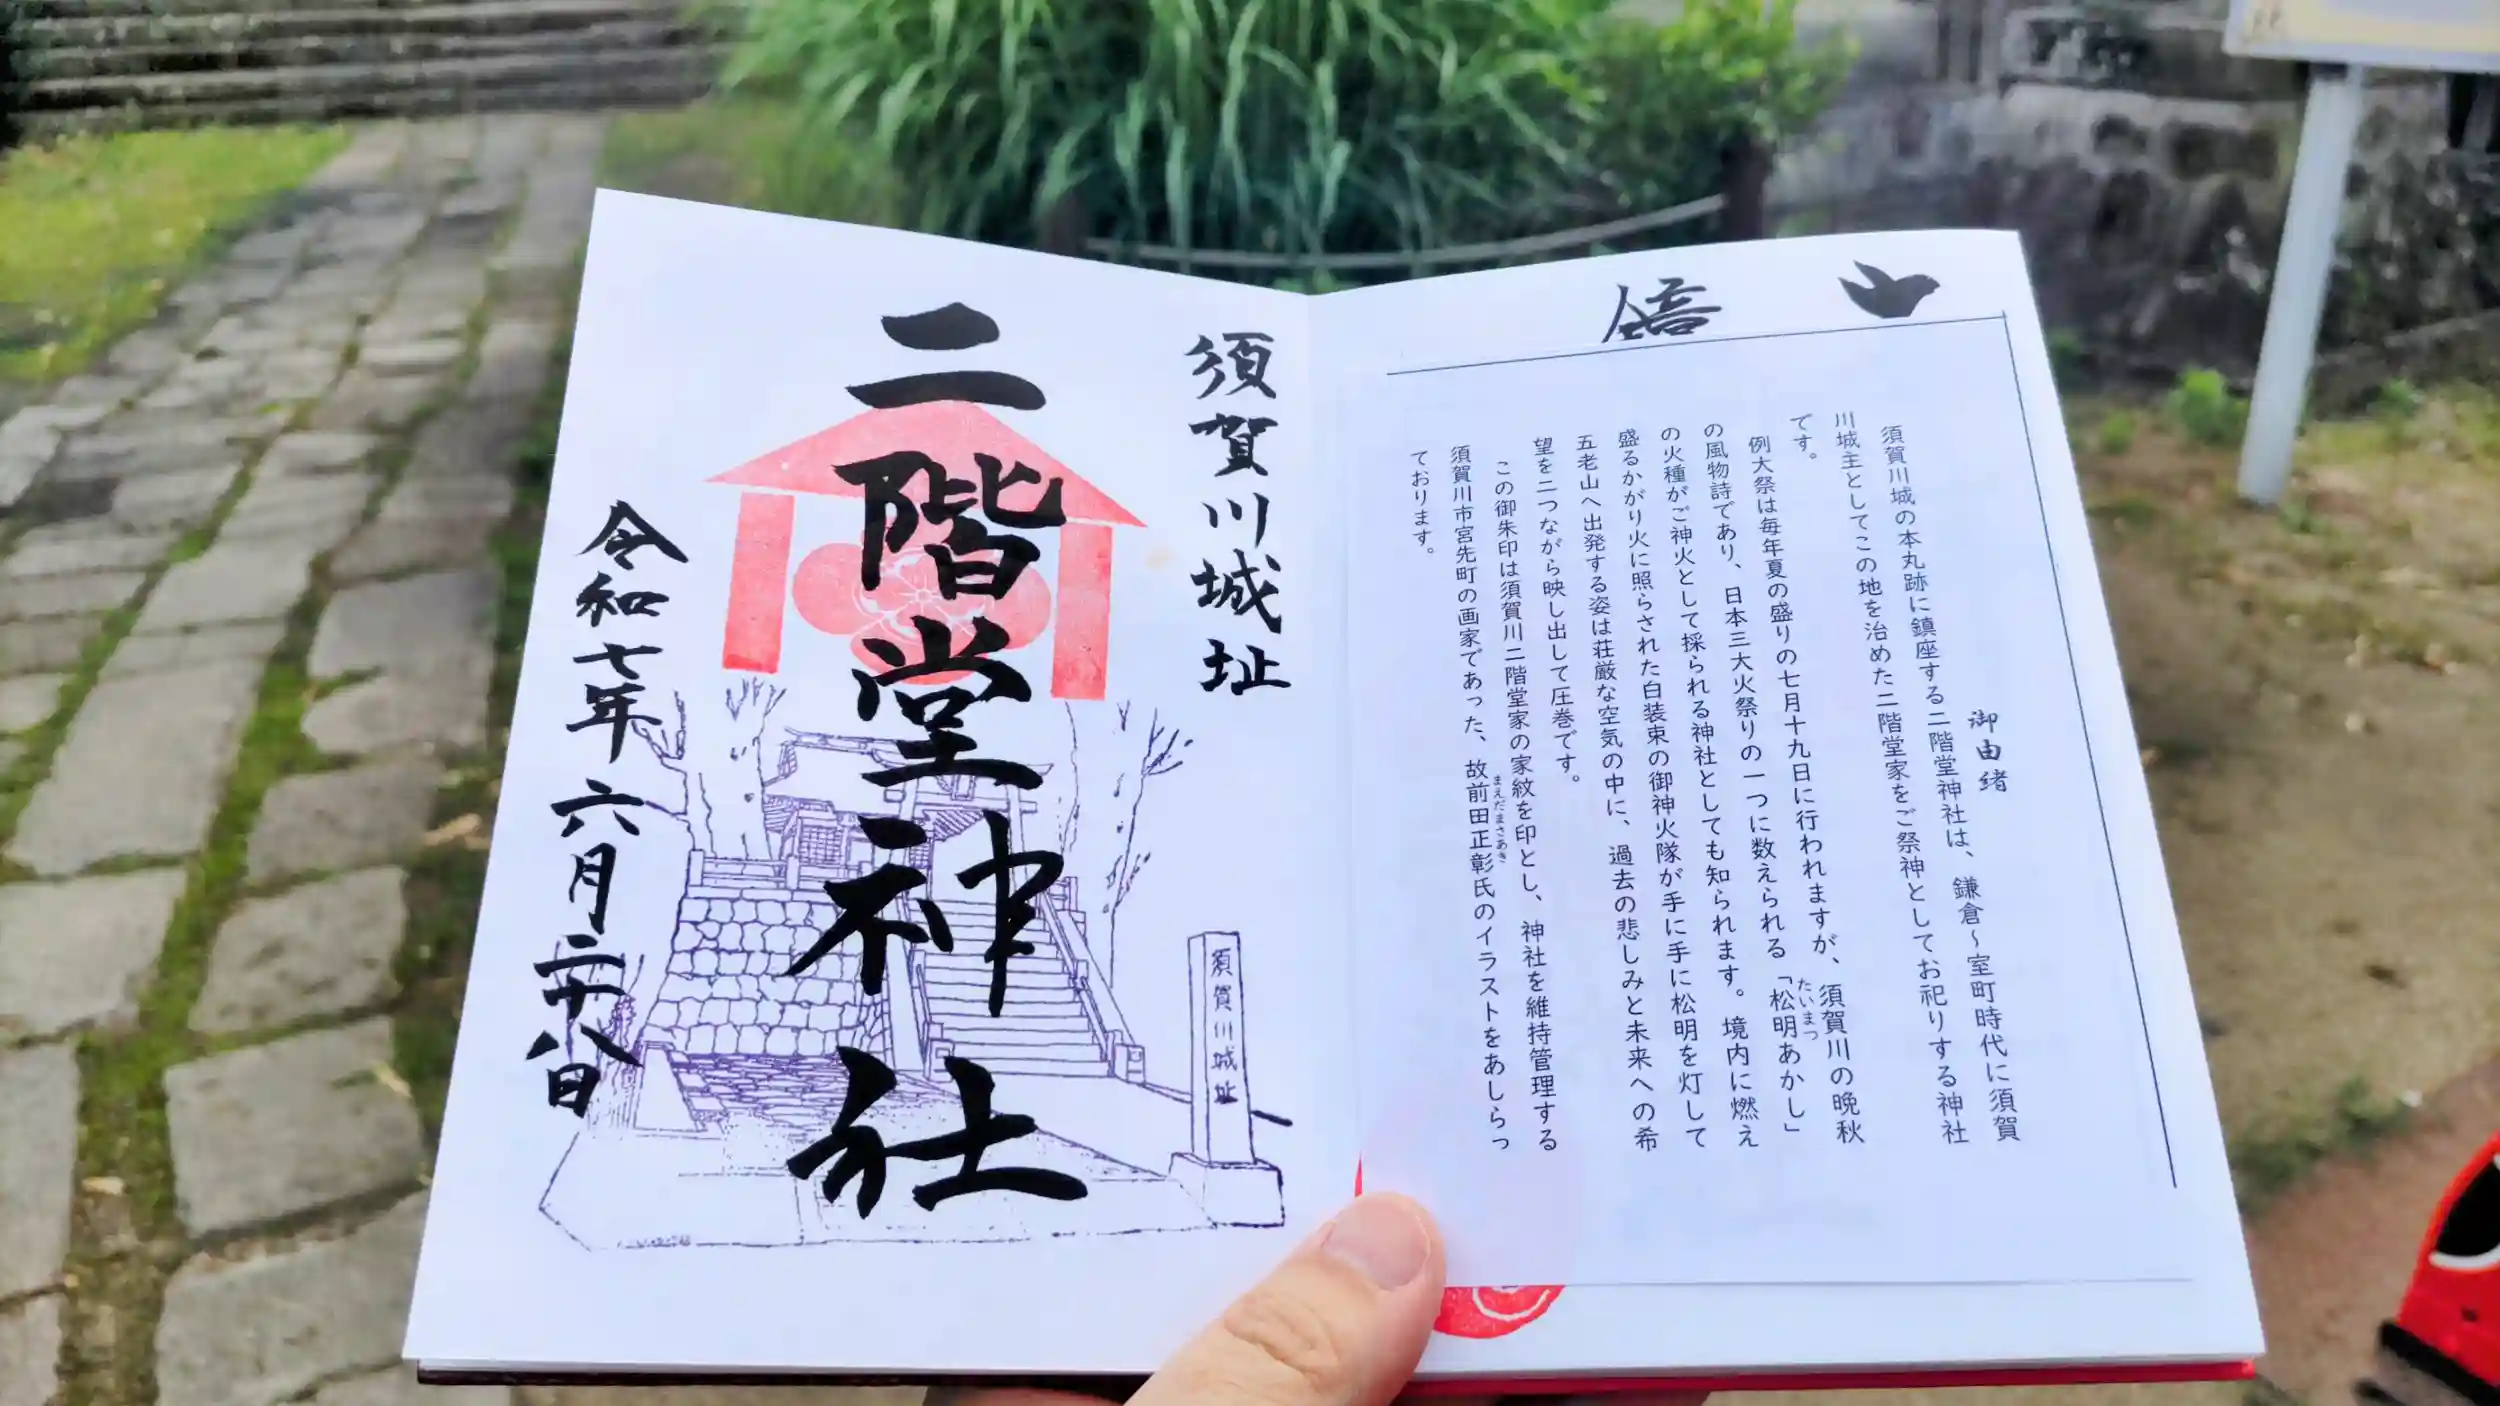 御由緒
須賀川城の本丸跡に鎮座する二階堂神社は、鎌倉～室町時代に須賀
川城主としてこの地を治めた二階堂家をご祭神としてお祀りする神社
です。
例大祭は毎年夏の盛りの七月十九日に行われますが、須賀川の晩秋
の風物詩であり、日本三大火祭りの一つに数えられる「松明あかし」
たいまつ
の火種がご神火として採られる神社としても知られます。境内に燃え
盛るかがり火に照らされた白装束の御神火隊が手に手に松明を灯して
五老山へ出発する姿は荘厳な空気の中に、過去の悲しみと未来への希
望を二つながら映し出して圧巻です。
この御朱印は須賀川二階堂家の家紋を印とし、神社を維持管理する
須賀川市宮先町の画家であった、故前田正彰氏のイラストをあしらっ
まえだまさあき
ております。
須賀川城址
二階堂神社
令和七年六月二十八日
須賀川城址